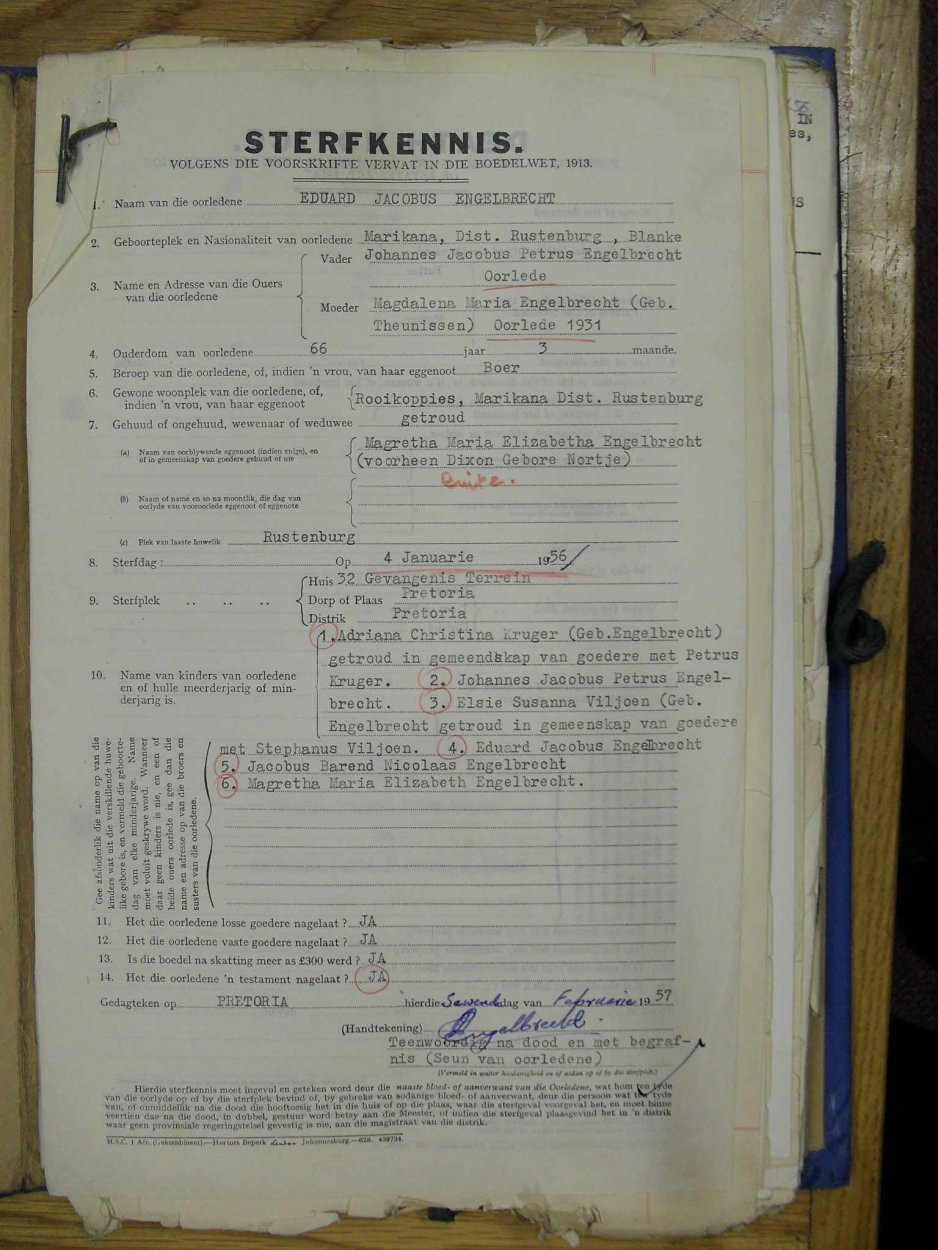 STERFKENNIS.
VOLGENS DIE VOORSKRIFTE VERVAT IN DIE BOEDELWET, 1913.
1. Naam van die oorledene EDUARD JACOBUS ENGELBRECHT
2. Geboorteplek en Nasionaliteit van oorledene Marikana, Dist. Rustenburg , Blanke
3. Name en Adresse van die Ouers van die oorledene
Vader Johannes Jacobus Petrus Engelbrecht
Oorlede
Moeder Magdalena Maria Engelbrecht (Geb.
Theunissen) Oorlede 1931
4. Ouderdom van oorledene 66 jaar 3 maande.
5. Beroep van die oorledene, of, indien 'n vrou, van haar eggenoot Boer
6. Gewone woonplek van die oorledene, of,
indien 'n vrou, van haar eggenoot Rooikoppies, Marikana Dist. Rustenburg
7. Gehuud of ongehuud, wewenaar of weduwee getroud
(a) Naam van oorblywende eggenoot (indien enige), en
of in gemeenskap van goedere gehuud of nie
Magretha Maria Elizabetha Engelbrecht
(voorheen Dixon Gebore Nortje)
Buite.
(b) Naam of name en so na moontlik, die dag van
oorlyde van vooroorlede eggenoot of eggenote
(c) Plek van laaste huwelik Rustenburg
8. Sterfdag : Op 4 Januarie 1956
9. Sterfplek .. .. ..
Huis 32 Gevangenis Terrein
Dorp of Plaas Pretoria
Distrik Pretoria
10. Name van kinders van oorledene
en of hulle meerderjarig of min-
derjarig is.
1. Adriana Christina Kruger (Geb.Engelbrecht)
getroud in gemeendskap van goedere met Petrus
Kruger. 2. Johannes Jacobus Petrus Engel-
brecht. 3. Elsie Susanna Viljoen (Geb.
Engelbrecht getroud in gemeenskap van goedere
met Stephanus Viljoen. 4. Eduard Jacobus Engelbrecht
5. Jacobus Barend Nicolaas Engelbrecht
6. Magretha Maria Elizabeth Engelbrecht.
Gee afsonderlik die name op van die
kinders wat uit die verskillende huwe-
like gebore is, en vermeld die geboorte-
dag van elke minderjarige. Name
moet voluit geskrywe word. Wanneer
daar geen kinders is nie, en een of
beide ouers oorlede is, gee dan die
name en adresse op van die broers en
susters van die oorledene.
11. Het die oorledene losse goedere nagelaat ? JA
12. Het die oorledene vaste goedere nagelaat ? JA
13. Is die boedel na skatting meer as £300 werd ? JA
14. Het die oorledene 'n testament nagelaat ? JA
Gedagteken op PRETORIA hierdie Sewende dag van Februarie 1957
(Handtekening) Engelbrecht.
Teenwoordig na dood en met begraf-
nis (Seun van oorledene)
(Vermeld in watter hoedanigheid en of aldan op of by die sterfplek.)
Hierdie sterfkennis moet ingevul en geteken word deur die naaste bloed- of aanverwant van die Oorledene, wat hom ten tyde
van die oorlyde op of by die sterfplek bevind of, by gebreke van sodanige bloed- of aanverwant, deur die persoon wat ten tyde
van, of onmiddellik na die dood die hooftoesig het in die huis of op die plaas, waar die sterfgeval voorgeval het, en moet binne
veertien dae na die dood, in dubbel, gestuur word hetsy aan die Meester, of indien die sterfgeval plaasgevind het in 'n distrik
waar geen provinsiale regeringstelsel gevestig is nie, aan die magistraat van die distrik.
M.S.C. 1 Afr. (Gekombineer).—Hortors Beperk Johannesburg.—628. 459754.